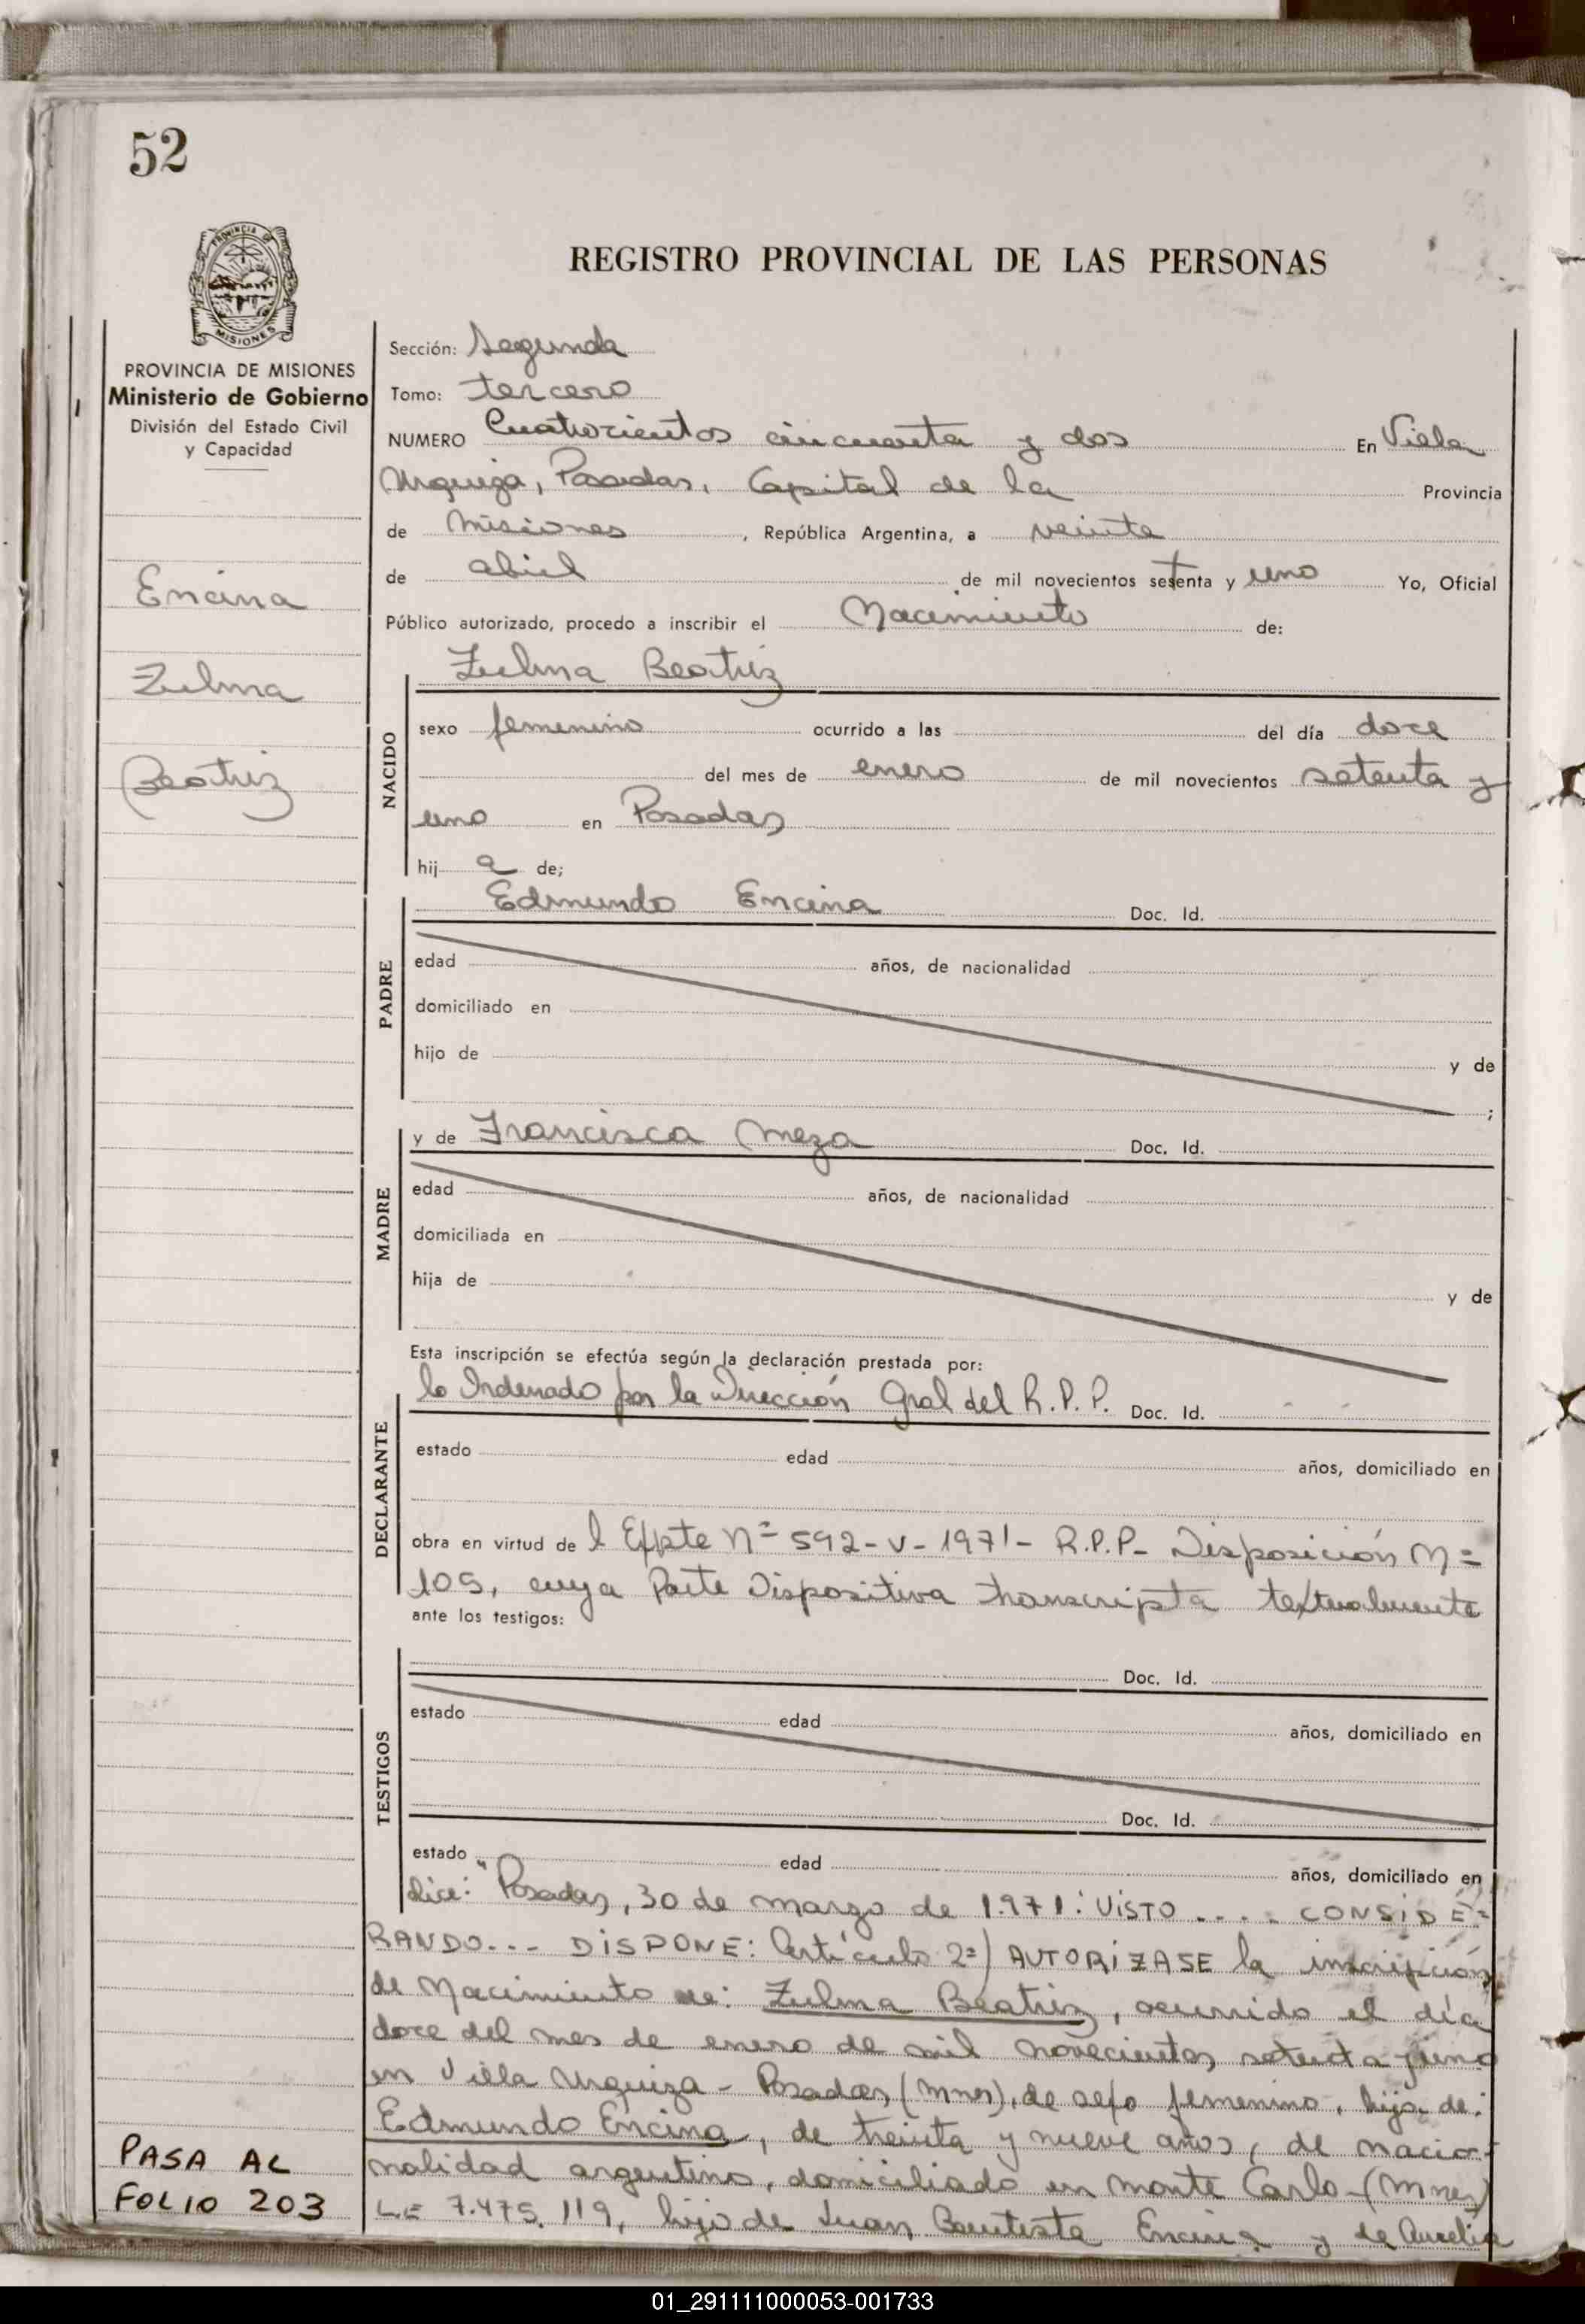 52
PROVINCIA DE
MISIONES
REGISTRO PROVINCIAL DE LAS PERSONAS
PROVINCIA DE MISIONES
Ministerio de Gobierno
División del Estado Civil
y Capacidad
Encina
Zulma
Beatriz
Sección: Segunda
Tomo: tercero
NUMERO Cuatrocientos cincuenta y dos En Viela
Urquiza, Posadas, Capital de la Provincia
de Misiones, República Argentina, a veinte
de abril de mil novecientos setenta y uno Yo, Oficial
Público autorizado, procedo a inscribir el Nacimiento de:
Zulma Beatriz
NACIDO
sexo femenino ocurrido a las del día doce
del mes de enero de mil novecientos setenta y
uno en Posadas
hij a de;
PADRE
Edmundo Encina Doc. Id.
edad años, de nacionalidad
domiciliado en
hijo de y de
;
MADRE
y de Francisca Meza Doc. Id.
edad años, de nacionalidad
domiciliada en
hija de y de
Esta inscripción se efectúa según la declaración prestada por:
DECLARANTE
lo Ordenado por la Dirección Gral del R.P.P. Doc. Id.
estado edad años, domiciliado en
obra en virtud de l Expte Nº 592-V-1971- R.P.P- Disposición Nº
109, cuya Parte Dispositiva transcripta textualmente
ante los testigos:
TESTIGOS
Doc. Id.
estado edad años, domiciliado en
Doc. Id.
estado edad años, domiciliado en
dice: "Posadas, 30 de marzo de 1.971: VISTO .... CONSIDE=
RANDO... DISPONE: Artículo 2º) AUTORIZASE la inscripción
de Nacimiento de: Zulma Beatriz, ocurrido el día
doce del mes de enero de mil novecientos setenta y uno
en Villa Urquiza - Posadas (Mnes), de sexo femenino, hija de:
Edmundo Encina, de treinta y nueve años, de nacio-
nalidad argentina, domiciliado en Monte Carlo-(Mnes)
L.E 7.475.119, hijo de Juan Bautista Encina y de Aurelia
PASA AL
FOLIO 203
01_291111000053-001733